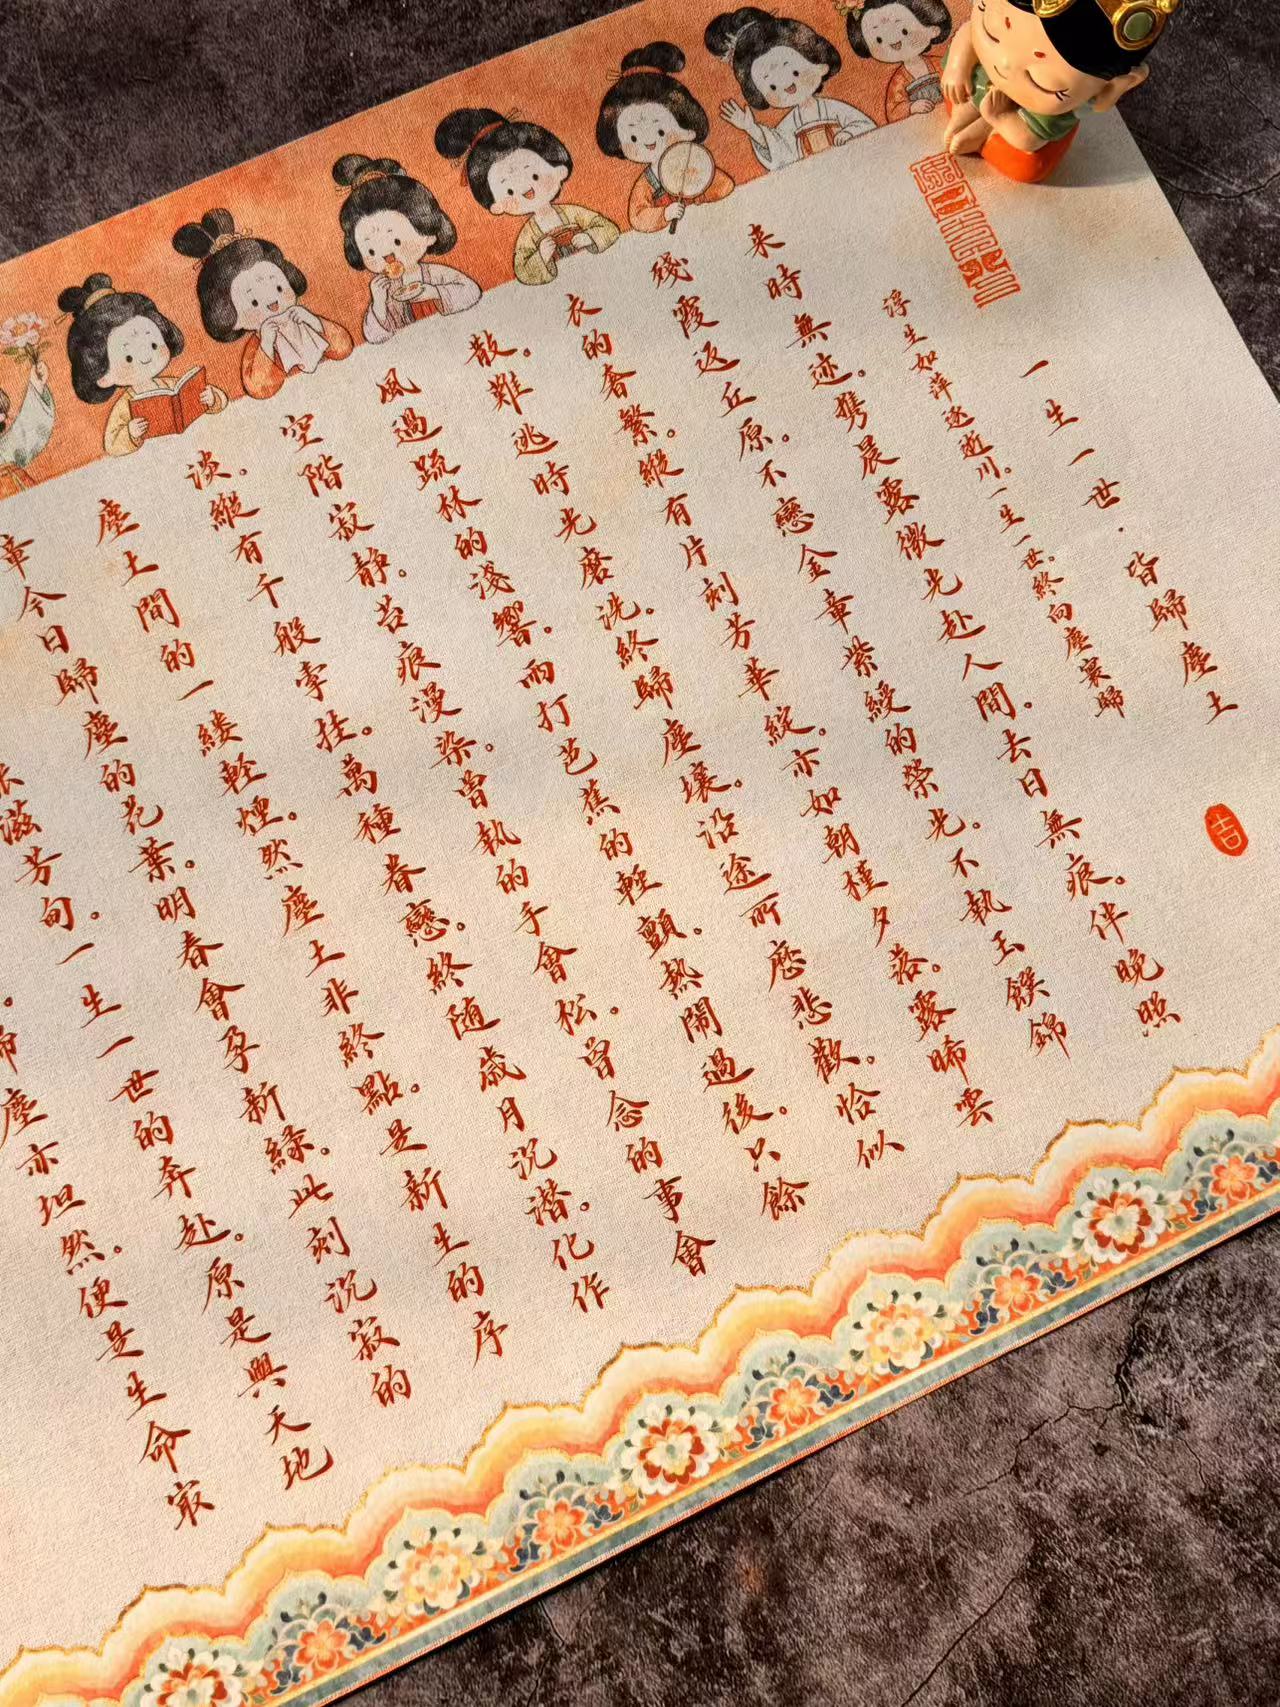 一生一世·皆歸塵土
吉
浮生如萍逐逝川。一生一世。終向塵裏歸
来時無迹。携晨露微光赴人間。去日無痕。伴晚照
殘霞返丘原。不戀金章紫綬的榮光。不執玉饌錦
衣的奢繁。縱有片刻芳華綻。亦如朝槿夕落。露晞雲
散。難逃時光磨洗。終歸塵壤。沿途所歷悲歡。恰似
風過疏林的淺響。雨打芭蕉的輕顫。熱鬧過後。只餘
空階寂静。苔痕漫染。曾執的手會松。曾念的事會
淡。縱有千般牽挂。萬種眷戀。終随歲月沉潜。化作
塵土間的一縷輕煙。然塵土非終點。是新生的序
章今日歸塵的花葉。明春會孕新緑。此刻沉寂的
滋芳甸。一生一世的奔赴。原是與天地
歸塵亦坦然。便是生命最